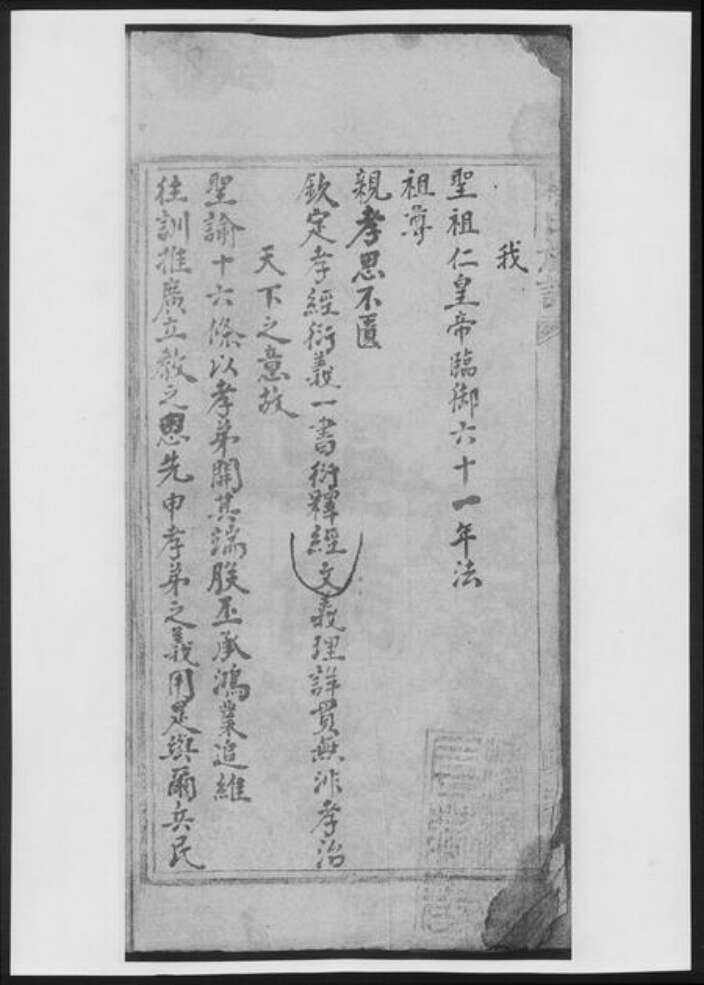 我
聖祖仁皇帝臨御六十一年法
祖尊
親孝思不匱
欽定孝經衍義一書衍釋經文義理詳貫無非孝治
天下之意故
聖諭十六條以孝弟開其端朕丕承鴻業追維
往訓推廣立教之思先申孝弟之義用是與爾兵民